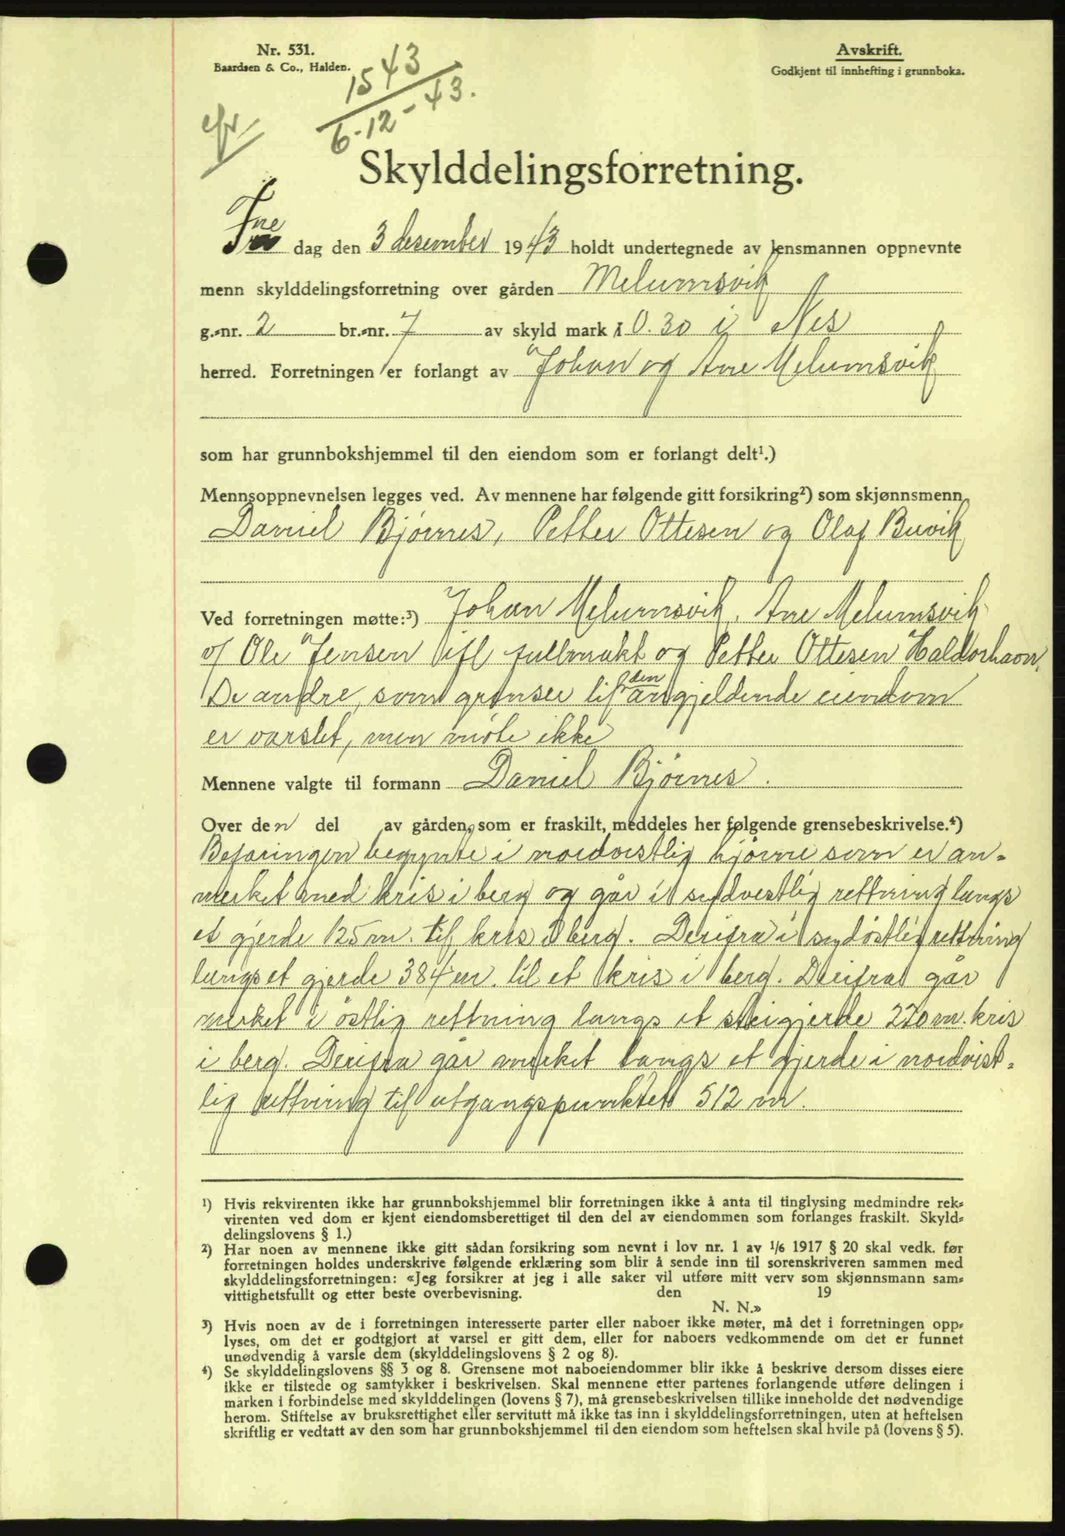 Nr. 531.
Baardsen & Co., Halden.
Avskrift.
Godkjent til innhefting i grunnboka.
1543
6-12-43.
Skylddelingsforretning.
Fre dag den 3 desember 1943 holdt undertegnede av lensmannen oppnevnte
menn skylddelingsforretning over gården Melumsvik
g.-nr. 2 br.-nr. 7 av skyld mark 0.30 i Nes
herred. Forretningen er forlangt av Johan og Ane Melumsvik
som har grunnbokshjemmel til den eiendom som er forlangt delt¹.)
Mennsoppnevnelsen legges ved. Av mennene har følgende gitt forsikring²) som skjønnsmenn
Daniel Bjørnes, Petter Ottesen og Olaf Buvik
Ved forretningen møtte:³) Johan Melumsvik, Ane Melumsvik
v/ Ole Jensen ifl fullmakt og Petter Ottesen Haldorhavn.
De andre, som grenser til den angjeldende eiendom
er varslet, men møte ikke
Mennene valgte til formann Daniel Bjørnes.
Over den del av gården, som er fraskilt, meddeles her følgende grensebeskrivelse.⁴)
Befaringen begynte i nordvestlig hjørne som er an-
merket med kris i berg og går i sydvestlig rettning langs
et gjerde 125 m. til kris i berg. Derifra i sydøstlig rettning
langs et gjerde 384 m. til et kris i berg. Derifra går
merket i østlig rettning langs et steigjerde 220 m. kris
i berg. Derifra går merket langs et gjerde i nordvist-
lig rettning til utgangspunktet 512 m.
¹) Hvis rekvirenten ikke har grunnbokshjemmel blir forretningen ikke å anta til tinglysing medmindre rek-
virenten ved dom er kjent eiendomsberettiget til den del av eiendommen som forlanges fraskilt. Skyld-
delingslovens § 1.)
²) Har noen av mennene ikke gitt sådan forsikring som nevnt i lov nr. 1 av 1/6 1917 § 20 skal vedk. før
forretningen holdes underskrive følgende erklæring som blir å sende inn til sorenskriveren sammen med
skylddelingsforretningen: «Jeg forsikrer at jeg i alle saker vil utføre mitt verv som skjønnsmann sam-
vittighetsfullt og etter beste overbevisning. den 19
N. N.»
³) Hvis noen av de i forretningen interesserte parter eller naboer ikke møter, må det i forretningen opp-
lyses, om det er godtgjort at varsel er gitt dem, eller for naboers vedkommende om det er funnet
unødvendig å varsle dem (skylddelingslovens § 2 og 8).
⁴) Se skylddelingslovens §§ 3 og 8. Grensene mot naboeiendommer blir ikke å beskrive dersom disses eiere
ikke er tilstede og samtykker i beskrivelsen. Skal mennene etter partenes forlangende utføre delingen i
marken i forbindelse med skylddelingen (lovens § 7), må grensebeskrivelsen tillike inneholde det nødvendige
herom. Stiftelse av bruksrettighet eller servitutt må ikke tas inn i skylddelingsforretningen, uten at heftelsen
skriftlig er vedtatt av den som har grunnbokshjemmel til den eiendom som heftelsen skal hvile på (lovens § 5).